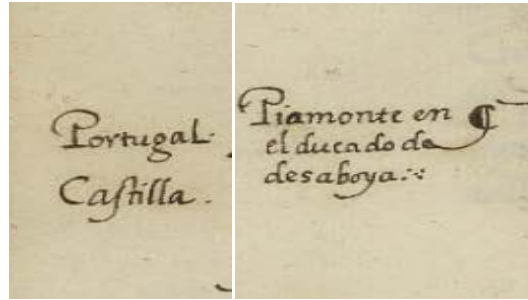 Portugal.
Castilla.
Piamonte en ¶
el ducado de
desaboya.:·